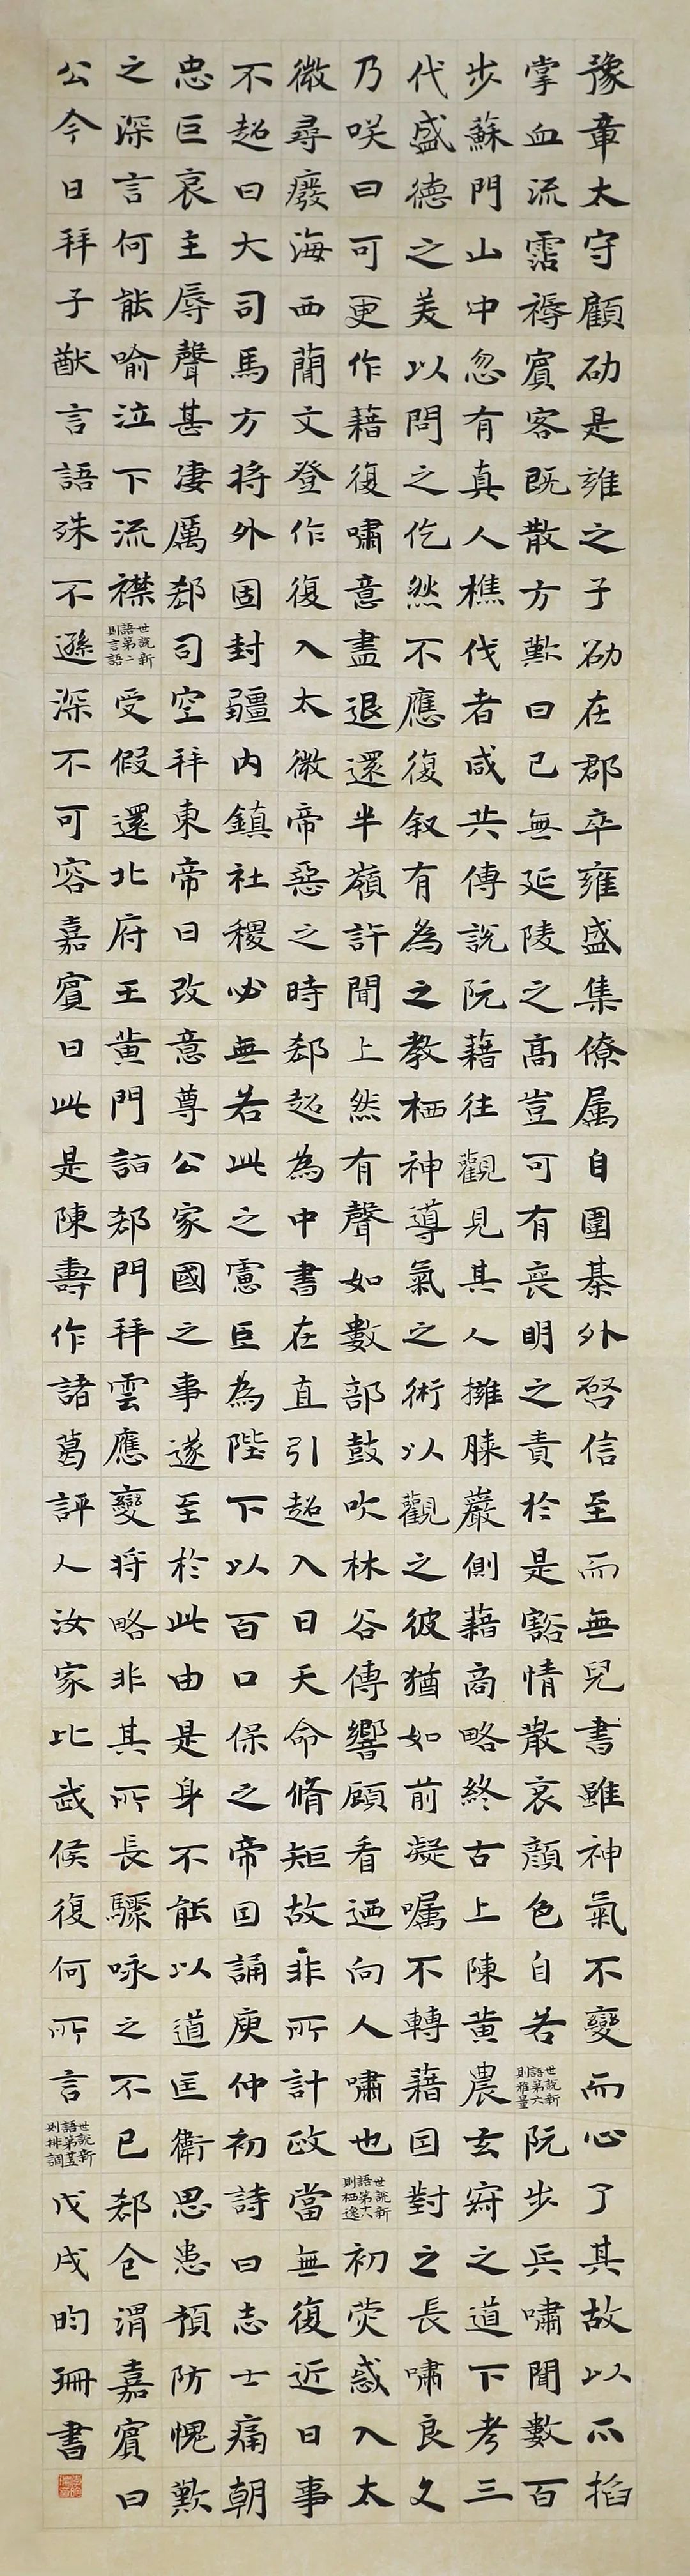 豫章太守顧劭是雍之子劭在郡卒雍盛集僚属自圍棊外啓信至而無兒書雖神氣不變而心了其故以爪掐
掌血流霑褥賓客既散方歎曰已無延陵之高豈可有喪明之責於是豁情散哀顏色自若世說新語第六則雅量阮步兵嘯聞數百
步蘇門山中忽有真人樵伐者咸共傳說阮藉往觀見其人擁膝巖側藉商略終古上陳黄農玄寂之道下考三
代盛德之美以問之仡然不應復叙有為之教栖神導氣之術以觀之彼猶如前凝囑不轉藉因對之長嘯良久
乃咲曰可更作藉復嘯意盡退還半嶺許聞上然有聲如數部鼓吹林谷傳響顧看迺向人嘯也世說新語第十八則栖逸初熒惑入太
微尋廢海西蕳文登作復入太微帝惡之時郄超為中書在直引超入曰天命脩矩故非所計政當無復近日事
不超曰大司馬方將外固封疆内鎮社稷必無若此之慮臣為陛下以百口保之帝因誦庾仲初詩曰志士痛朝
忠臣哀主辱聲甚凄厲郄司空拜東帝曰改意尊公家國之事遂至於此由是身不能以道匡衛思患預防愧歎
之深言何能喻泣下流襟世說新語第二則言語受假還北府王黄門詣郄門拜雲應變将略非其所長驟咏之不已郄仓謂嘉賓曰
公今日拜子猷言語殊不遜深不可容嘉賓曰此是陳壽作諸葛評人汝家比武侯復何所言世說新語第則排調戊戌昀珊書